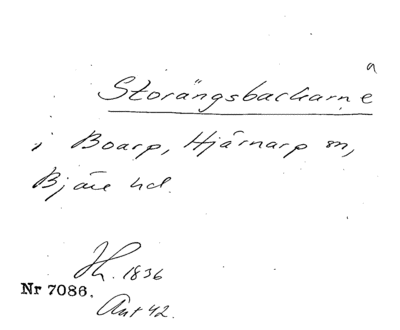 a
Storängsbackarne
i Boarp, Hjärnarp sn,
Bjäre hd.
Jh. 1836
Nr 7086.
Ant 42.